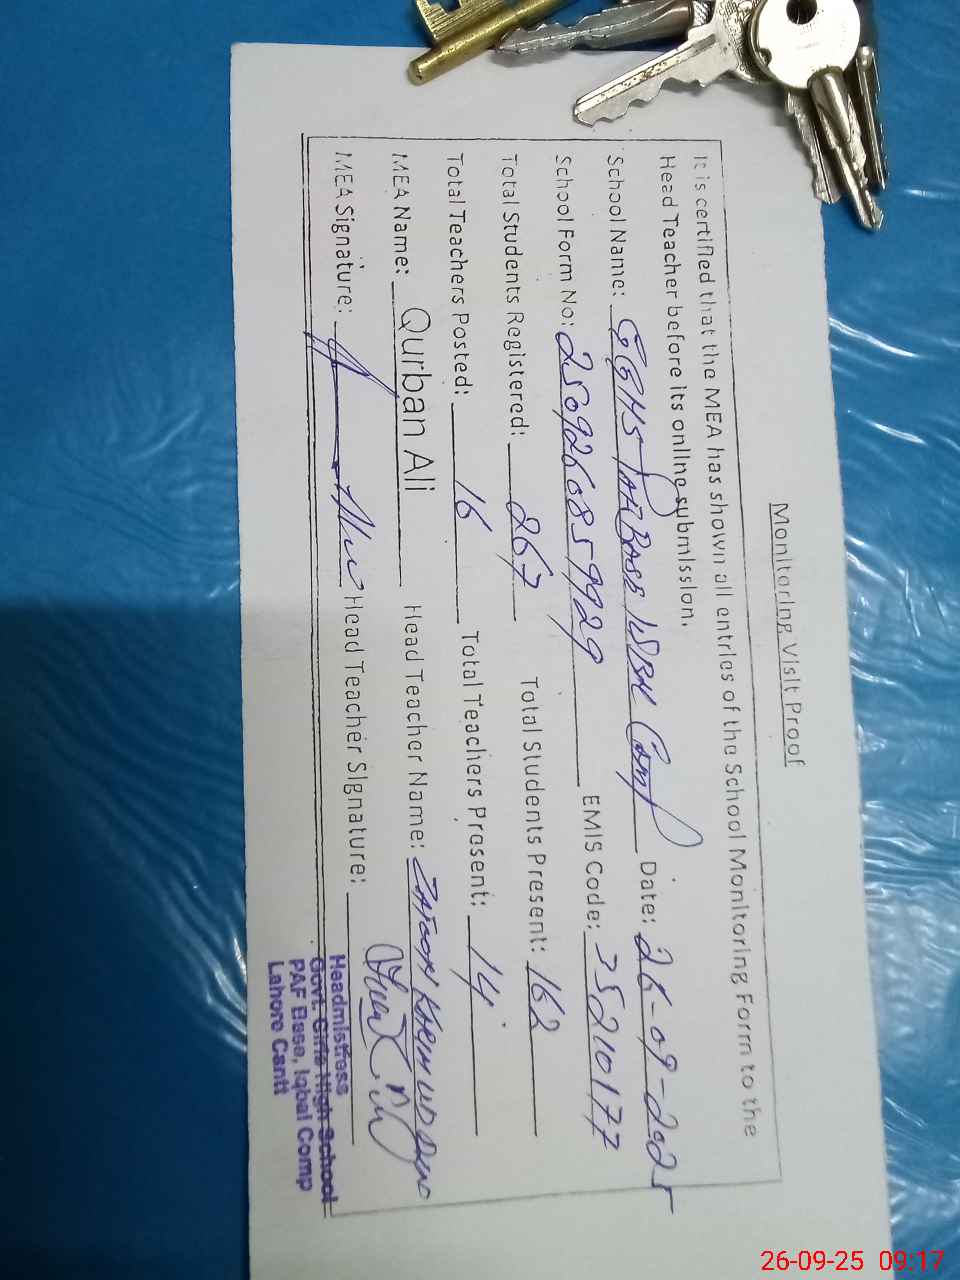 Monitoring Visit Proof
It is certified that the MEA has shown all entries of the School Monitoring Form to the
Head Teacher before its online submission.
School Name: GGHS PAF Base Date: 26-09-2025
School Form No: 2509266859929 EMIS Code: 35210177
Total Students Registered: 267 Total Students Present: 162
Total Teachers Posted: 16 Total Teachers Present: 14
MEA Name: Qurban Ali Head Teacher Name:
MEA Signature: Head Teacher Signature:
Headmistress
Govt. Girls High School
PAF Base, Iqbal Comp
Lahore Cantt
26-09-25 09:17